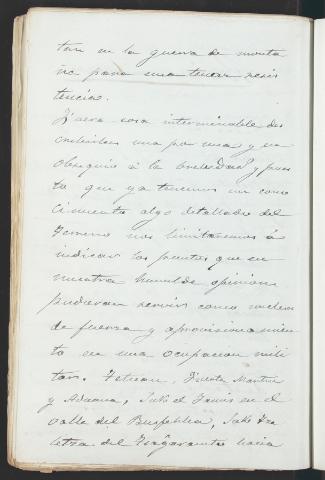 tan en la guerra de monta
ña para una tenaz resis
tencia.
Fuera cosa interminable des
cribirlas una por una y en
obsequio á la brevedad y pues
to que ya tenemos un cono
cimiento algo detallado del
terreno nos limitaremos á
indicar los puntos que en
nuestra humilde opinion
pudieran servir como nucleos
de fuerza y aprovisionamien
to en una ocupacion mili
tar. Tetuan, Fuerte Martin
y Aduana, en el
valle del
del hacia